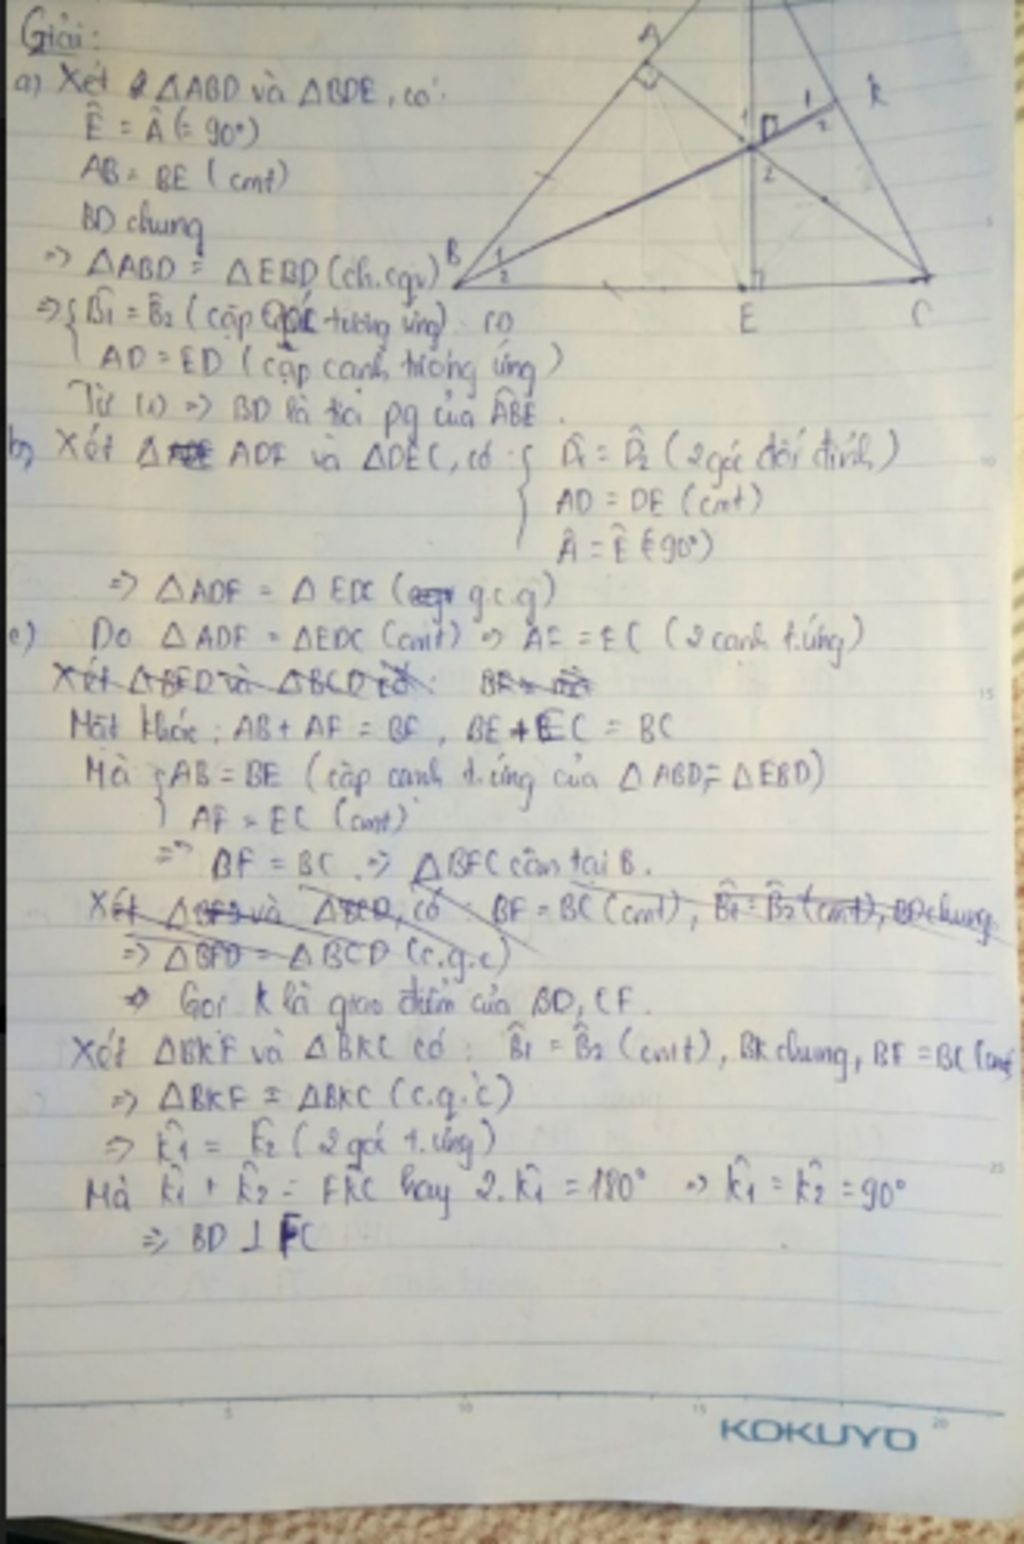 Giải:
a) Xét ΔABD và ΔBDE, có:
Ê = Â (= 90°)
AB = BE (cmt)
BD chung
=> ΔABD = ΔEBD (ch.cgv)
=> { B̂1 = B̂2 (cặp góc tương ứng) (1)
AD = ED (cặp cạnh tương ứng)
Từ (1) => BD là tia pg của ABE.
b) Xét Δ ADF và ΔDEC, có: { D̂1 = D̂2 (2 góc đối đỉnh)
AD = DE (cmt)
Â = Ê (=90°)
=> ΔADF = ΔEDC (g.c.g)
c) Do ΔADF = ΔEDC (cmt) => AF = EC (2 cạnh t.ứng)
Xét ΔBFD và ΔBCD có: BF =
Mặt khác: AB + AF = BF, BE + EC = BC
Mà { AB = BE (cặp cạnh t.ứng của ΔABD = ΔEBD)
AF = EC (cmt)
=> BF = BC => ΔBFC cân tại B.
Xét ΔBFD và ΔBCD, có: BF = BC (cmt), B̂1 = B̂2 (cmt), BD chung
=> ΔBFD = ΔBCD (c.g.c)
Gọi K là giao điểm của BD, CF.
Xét ΔBKF và ΔBKC có: B̂1 = B̂2 (cmt), BK chung, BF = BC (cmt)
=> ΔBKF = ΔBKC (c.g.c)
=> K̂1 = K̂2 (2 góc t.ứng)
Mà K̂1 + K̂2 = FKC hay 2.K̂1 = 180° => K̂1 = K̂2 = 90°
=> BD ⊥ FC
A
K
1
2
1
D
2
B
1
2
E
C
5
10
15
25
5
10
15
20
KOKUYO